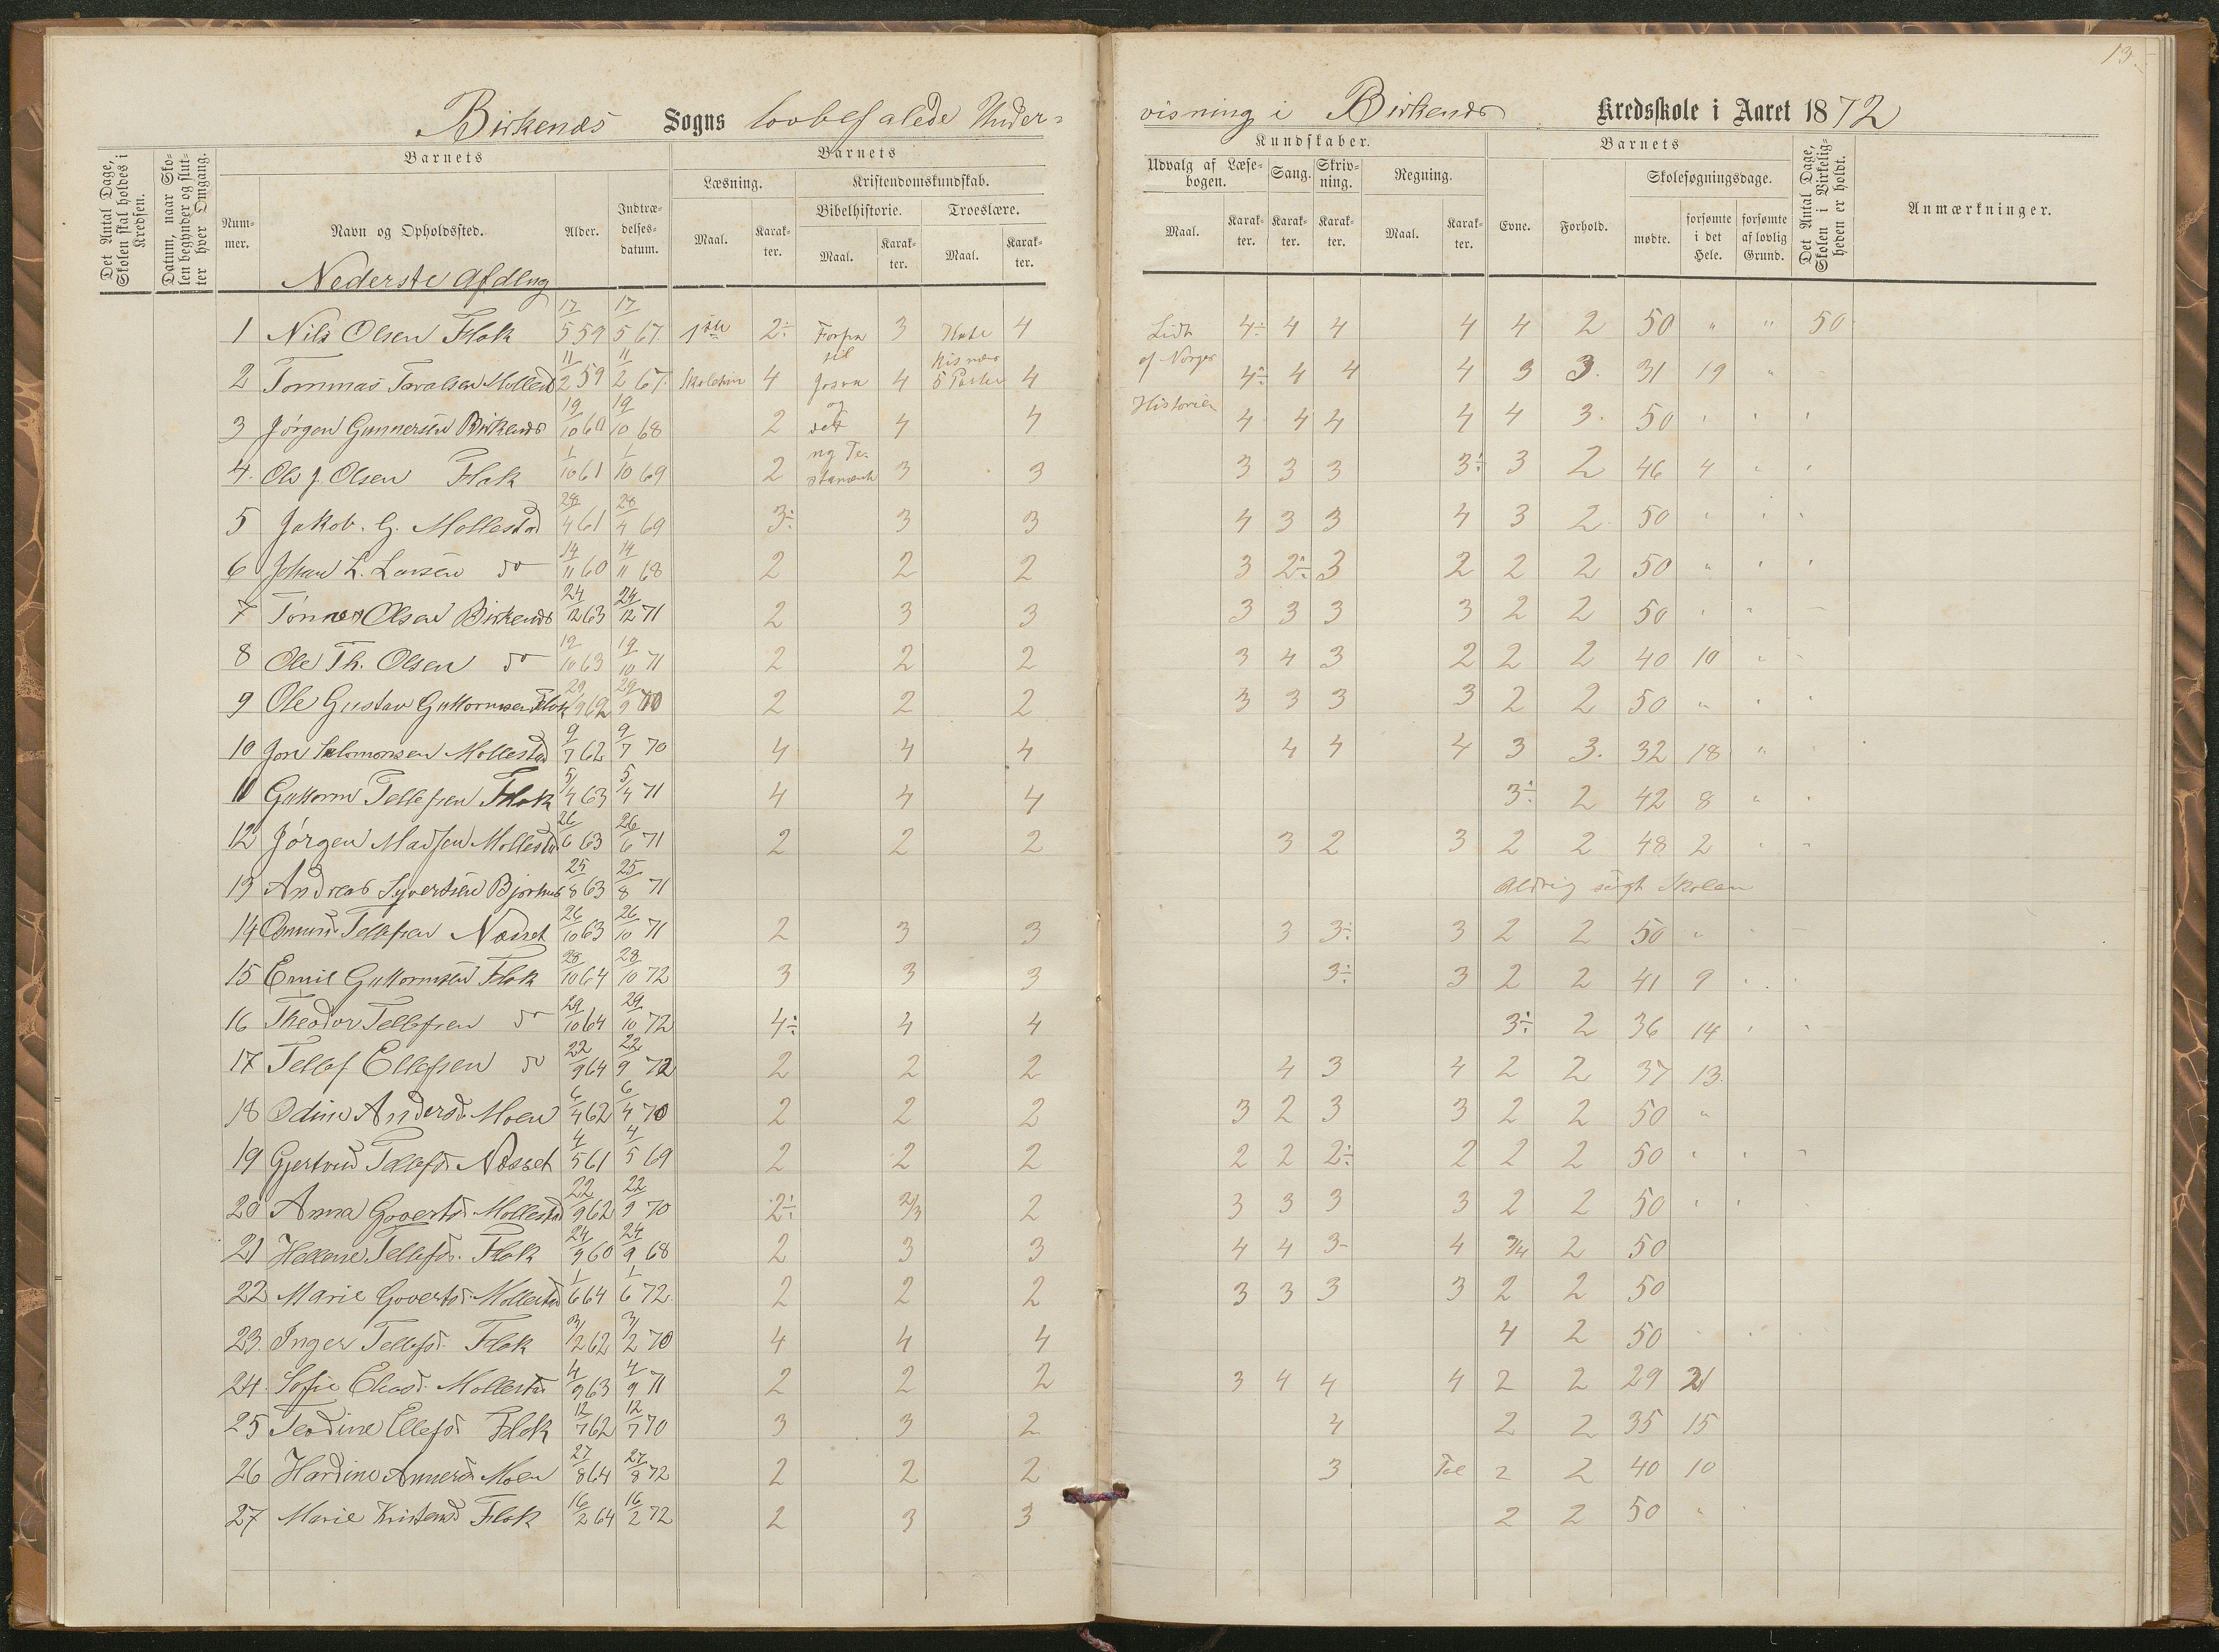 13.
Birkenes Sogns lovbefalede Under-
visning i Birkenes Kredsskole i Aaret 1872
Det Antal Dage, Skolen skal holdes i Kredsen.
Datum, naar Skolen begynder og slutter hver Omgang.
Barnets
Nummer.
Navn og Opholdssted.
Alder.
Indtrædelsesdatum.
Barnets
Læsning.
Maal.
Karakter.
Kristendomskundskab.
Bibelhistorie.
Maal.
Karakter.
Troeslære.
Maal.
Karakter.
Kundskaber.
Udvalg af Læsebogen.
Maal.
Karakter.
Sang.
Karakter.
Skrivning.
Karakter.
Regning.
Maal.
Karakter.
Barnets
Evne.
Forhold.
Skolesøgningsdage.
mødte.
forsømte i det Hele.
forsømte af lovlig Grund.
Det Antal Dage, Skolen i Virkeligheden er holdt.
Anmærkninger.
Nederste Afdlng
1 Nils Olsen Flak 17/5 59 17/5 67. 1ste 2÷ 3 4 Lidt 4÷ 4 4 4 4 2 50 " " 50
2 Tommas Tarvalsen Mollestad 11/2 59 11/2 67. Skoletrin 4 til Josva 4 5 Parter 4 af Norges 4÷ 4 4 4 3 3. 31 19 "
3 Jörgen Gunnersen Birkenes 19/10 60 19/10 68 2 og det 4 4 Historie 4 4 4 4 4 3. 50 " " "
4. Ole J. Olsen Flak 1/10 61 1/10 69 2 ny Testament 3 3 3 3 3 3÷ 3 2 46 4 " "
5 Jakob. G. Mollestad 28/4 61 28/4 69 3÷ 3 3 4 3 3 4 3 2 50 " " "
6 Johan L. Larsen do 14/11 60 14/11 68 2 2 2 3 2÷ 3 2 2 2 50 " " "
7 Tönnes Olsen Birkenes 24/12 63 24/12 71 2 3 3 3 3 3 3 2 2 50 " "
8 Ole Th. Olsen do 19/10 63 19/10 71 2 2 2 3 4 3 2 2 2 40 10 "
9 Ole Gustav Guttormsen Flak 29/9 62 29/9 70 2 2 2 3 3 3 3 2 2 50 " " "
10 Jon Salomonsen Mollestad 9/7 62 9/7 70 4 4 4 4 4 4 3 3. 32 18 "
11 Guttorm Tellefsen Flak 5/4 63 5/4 71 4 4 4 3÷ 2 42 8 "
12 Jörgen Madsen Mollestad 26/6 63 26/6 71 2 2 2 3 2 3 2 2 48 2 "
13 Andreas Syvertsen 25/8 63 25/8 71 Aldrig sögt Skolen
14 Tellefsen Næsset 26/10 63 26/10 71 2 3 3 3 3÷ 3 2 2 50 "
15 Emil Guttormsen Flak 28/10 64 28/10 72 3 3 3 3÷ 3 2 2 41 9
16 Theodor Tellefsen do 29/10 64 29/10 72 4÷ 4 4 3÷ 2 36 14
17 Tellef Ellefsen do 22/9 64 22/9 72 2 2 2 4 3 4 2 2 37 13.
18 Odine Andersd. Moen 6/4 62 6/4 70 2 2 2 3 2 3 3 2 2 50 "
19 Gjertrud Tellefsd. Næsset 4/5 61 4/5 69 2 2 2 2 2 2÷ 2 2 2 50 " "
20 Anna Govertsd. Mollestad 22/9 62 22/9 70 2÷ 2/3 2 3 3 3 3 2 2 50 " "
21 Hellene Tellefsd. Flak 24/9 60 24/9 68 2 3 3 4 4 3- 4 3/4 2 50
22 Marie Govertsd. Mollestad 1/6 64 1/6 72. 2 2 2 3 3 3 3 2 2 50
23. Inger Tellefsd. Flak 3/12 62 3/12 70 4 4 4 4 2 50
24. Sofie Eliasd. Mollestad 4/9 63 4/9 71 2 2 2 3 4 4 4 2 2 29 21
25 Teodine Ellefsd Flak 12/7 62 12/7 70 3 3 2 4 2 2 35 15
26 Hardine Annersd. Moen 27/8 64 27/8 72 2 2 2 3 Tal 2 2 40 10
27 Marie Kristensd Flak 16/2 64 16/2 72 2 3 3 2 2 50 "